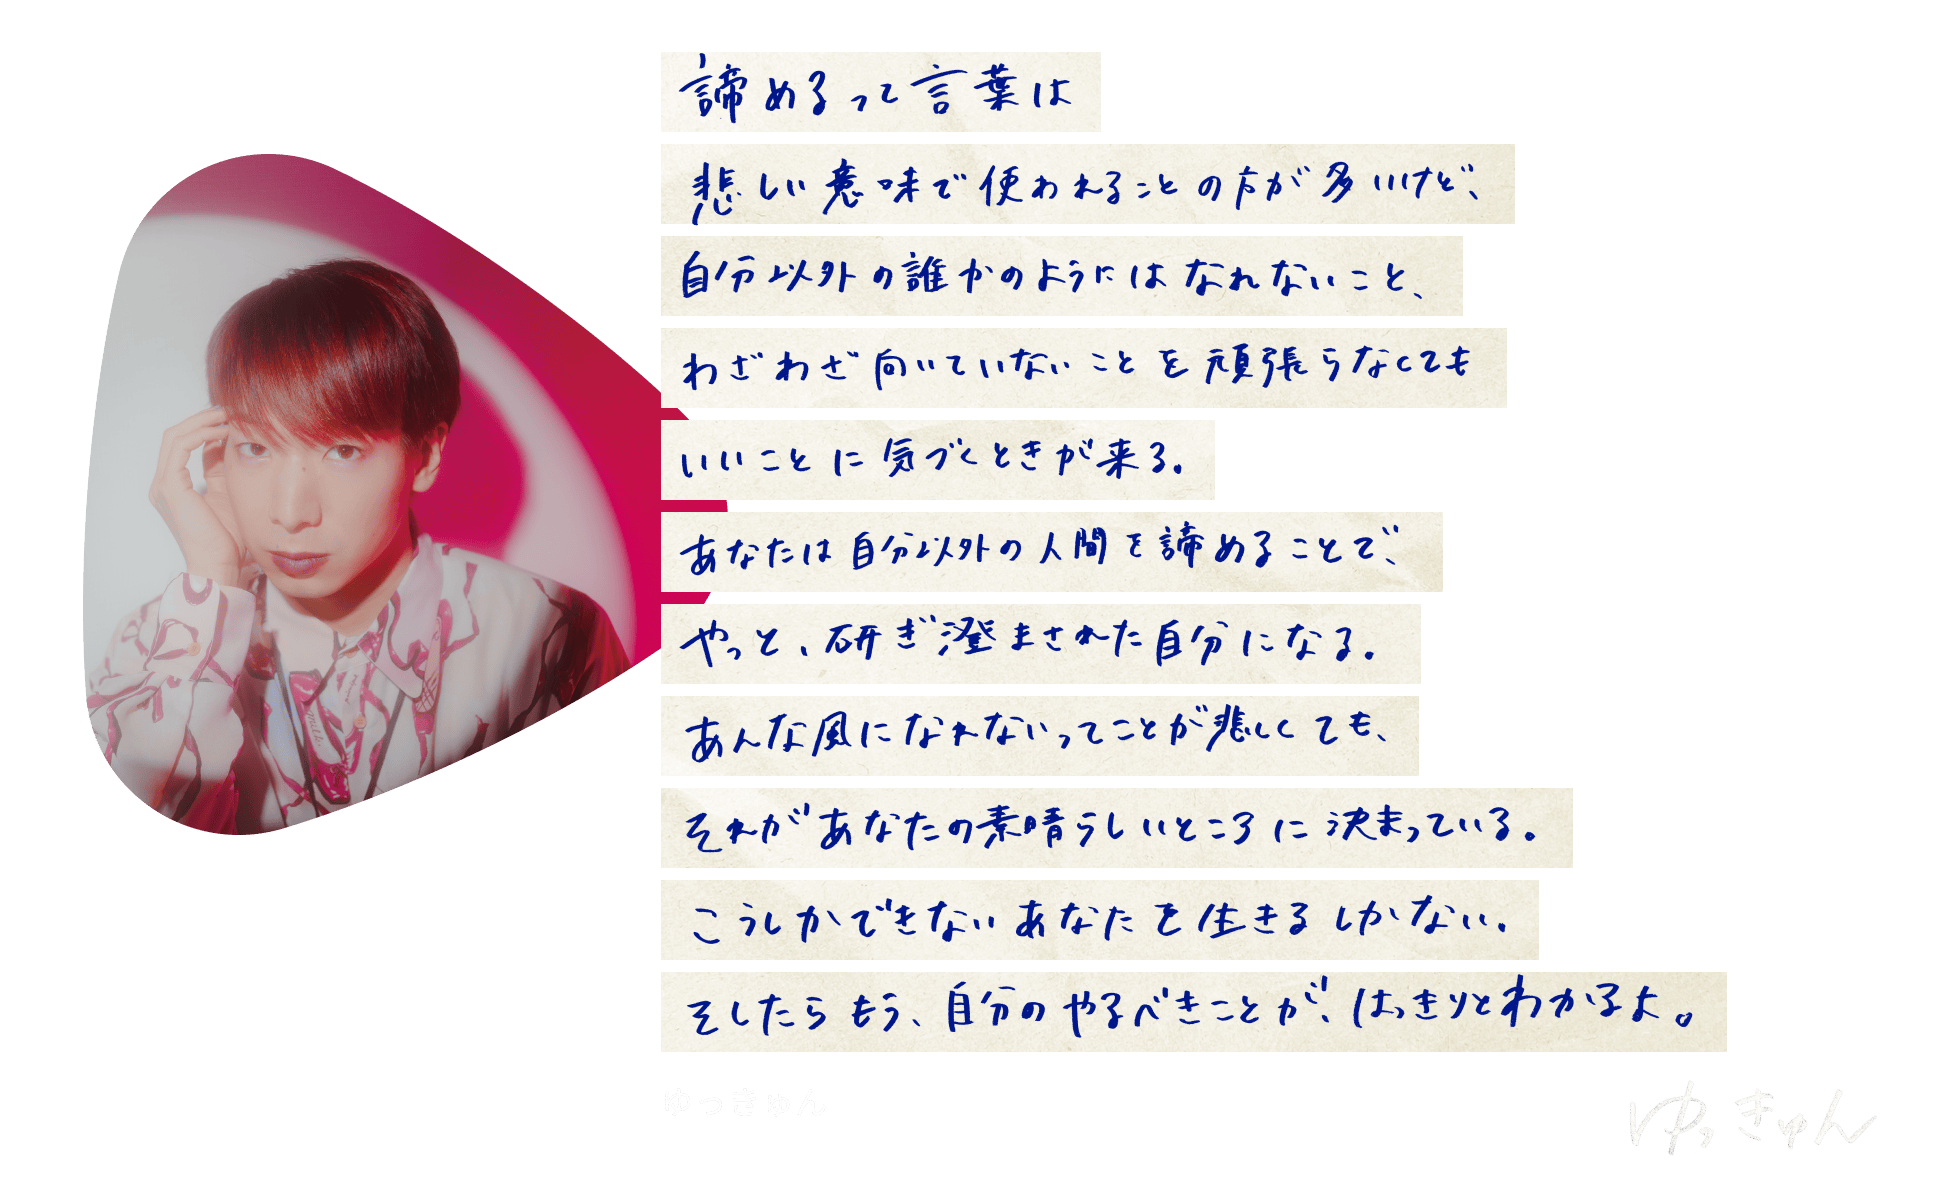 諦めるって言葉は
悲しい意味で使われることの方が多いけど、
自分以外の誰かのようにはなれないこと、
わざわざ向いていないことを頑張らなくても
いいことに気づくときが来る。
あなたは自分以外の人間を諦めることで、
やっと、研ぎ澄まされた自分になる。
あんな風になれないってことが悲しくても、
それがあなたの素晴らしいところに決まっている。
こうしかできないあなたを生きるしかない。
そしたらもう、自分のやるべきことが、はっきりとわかるよ。
ゆっきゅん
ゆっきゅん